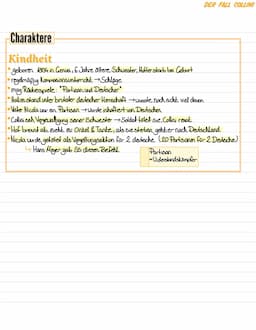 DER FALL COLLINI
Charaktere
Kindheit
geboren 1934 in Genua, 6 Jahre ältere Schwester, Mutter starb bei Geburt
regelmäßig →Schläge
mag Räuberspiele "Partisan und Deutscher"
Italien stand unter brutaler deutscher Herrschaft →
Vater Nicola war ein Partisan → wurde verhaftet von Deutschen
Collini sah Vergewaltigung seiner Schwester → Soldat tötet sie, Collini rennt
Hof brennt ab, zieht zu Onkel & Tante, als sie sterben, geht er nach Deutschland
Nicola wurde getötet als Vergeltungsaktion für 2 deutsche (20 Partisanen für 2 Deutsche)
↳ Hans Meyer gab diesen Befehl
Partisan